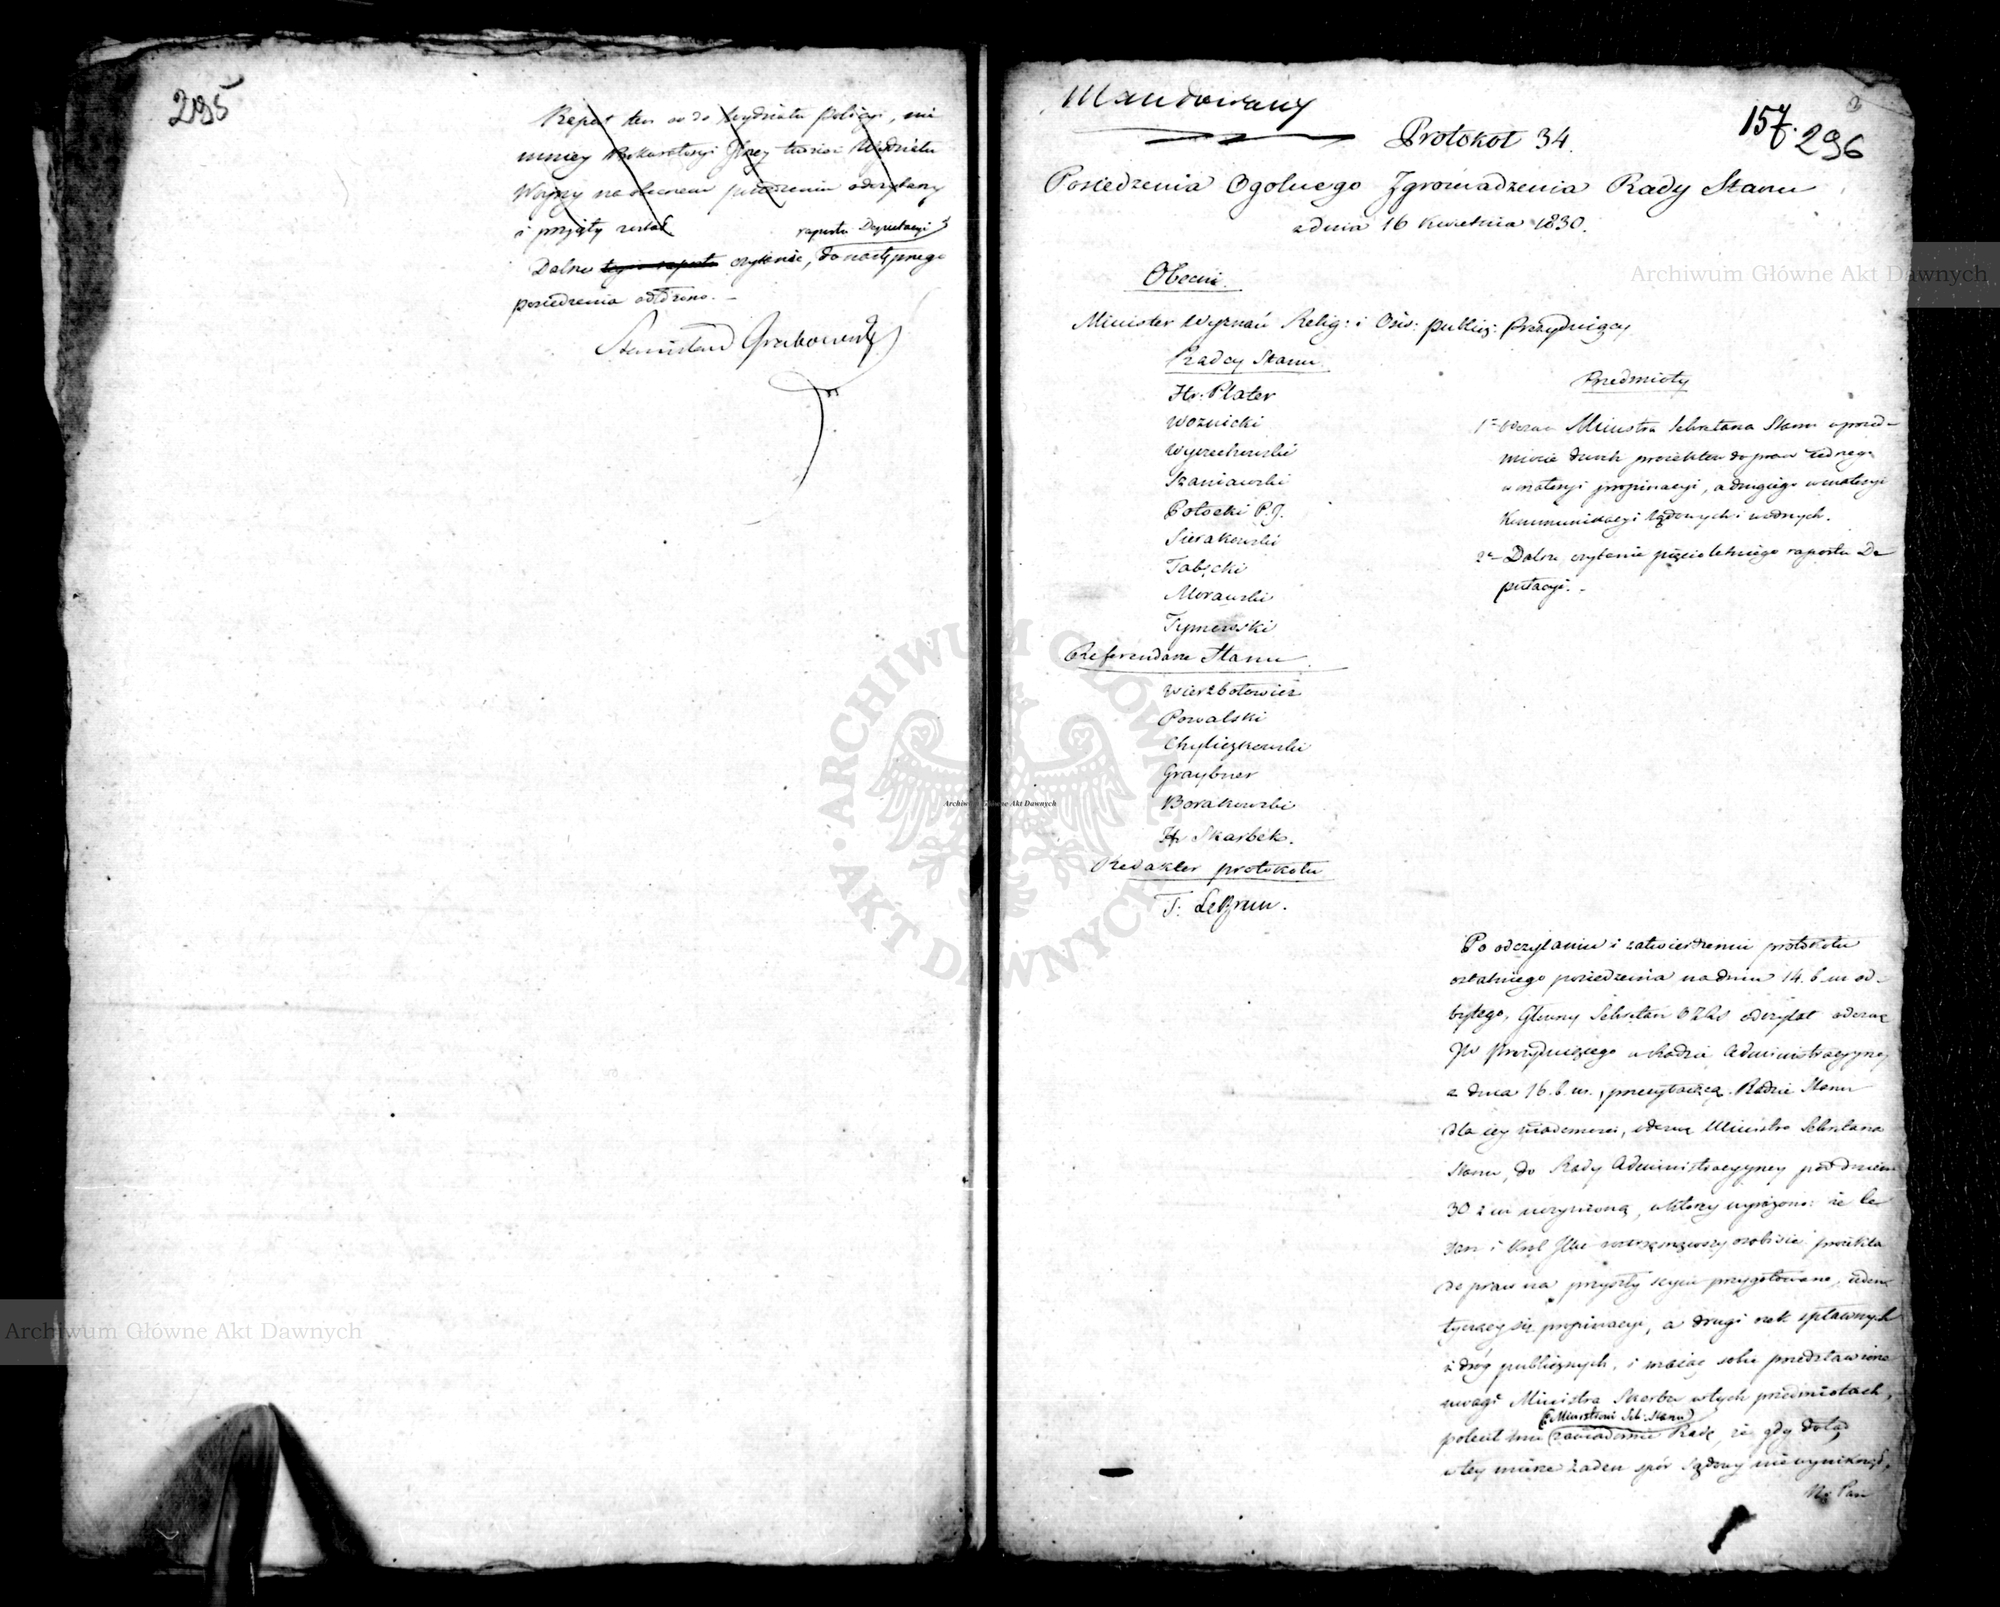 295
Raport ten co do Wydziału Policyi, nie
mniey Prokuratoryi Jlney tudzież Wydziału
Woyny na obecnem posiedzeniu odczytany
i przyjęty został
raportu Deputacyi
Dalsze tegoż raportu czytanie, do następnego
posiedzenia odłożono. –
Stanisław Grabowski
Mundowany
157.
296
Protokół 34.
Posiedzenia Ogolnego Zgromadzenia Rady Stanu
z dnia 16 Kwietnia 1830.
Obecni.
Minister Wyznań Relig: i Ośw: publicz: Prezyduiący
Radcy Stanu.
Hr: Plater
Woznicki
Wyczechowski
Szaniawski
Potocki P. J.
Sierakowski
Tabęcki
Morawski
Tymowski
Referendarze Stanu.
Wierzbołowicz
Powalski
Chyliczkowski
Graybner
Borakowski
Hr Skarbek.
Redaktor protokołu
T: LeBrun.
Przedmioty
1º Odezwa Ministra Sekretarza Stanu w przed-
miocie dwóch proiektów do praw iednego
w materyi propinacyi, a drugiego w materyi
Kommunikacyi lądowych i wodnych.
2º Dalsze czytanie pięcioletniego raportu De-
putacyi. –
Po odczytaniu i zatwierdzeniu protokołu
ostatniego posiedzenia na dniu 14. b. m od-
bytego, Główny Sekretarz odczytał odezwę
JW Prezyduiącego w Radzie Administracyyney
z dnia 16. b. m., przesyłaiącą Radzie Stanu
dla iey wiadomości, odezwę Ministra Sekretarza
Stanu, do Rady Administracyyney pod dniem
30 z m uczynioną, w ktorey wyrażono: że Ce-
sarz i Król Jmć roztrząsnąwszy osobiście proiekta
do praw na przyszły seym przygotowane, ieden
tyczący się propinacyi, a drugi rzek spławnych
i dróg publicznych, i maiąc sobie przedstawione
uwagi Ministra Skarbu w tych przedmiotach,
(Ministrowi Sek: Stanu)
polecił mu zawiadomić Radę, że gdy dotąd
w tey mierze żaden spór sądowy nie wyniknął,
N. Pan
Archiwum Główne Akt Dawnych
Archiwum Główne Akt Dawnych
Archiwum Główne Akt Dawnych
ARCHIWUM GŁÓWNE AKT DAWNYCH